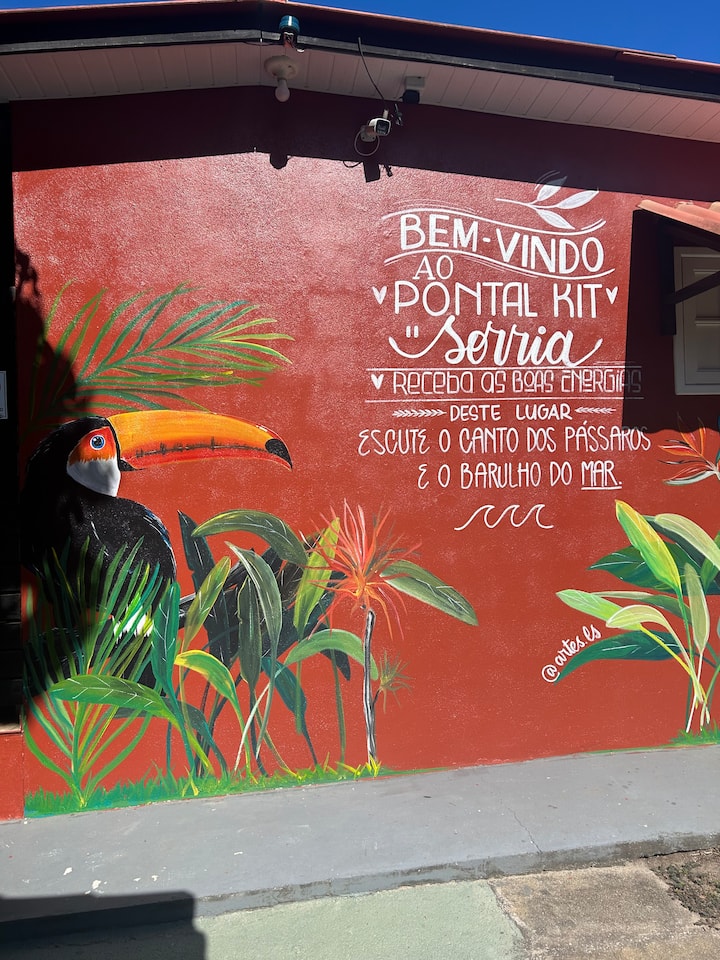 BEM-VINDO
AO
PONTAL KIT
"Sorria
RECEBA AS BOAS ENERGIAS
DESTE LUGAR
ESCUTE O CANTO DOS PÁSSAROS
E O BARULHO DO MAR.
@artes.ls